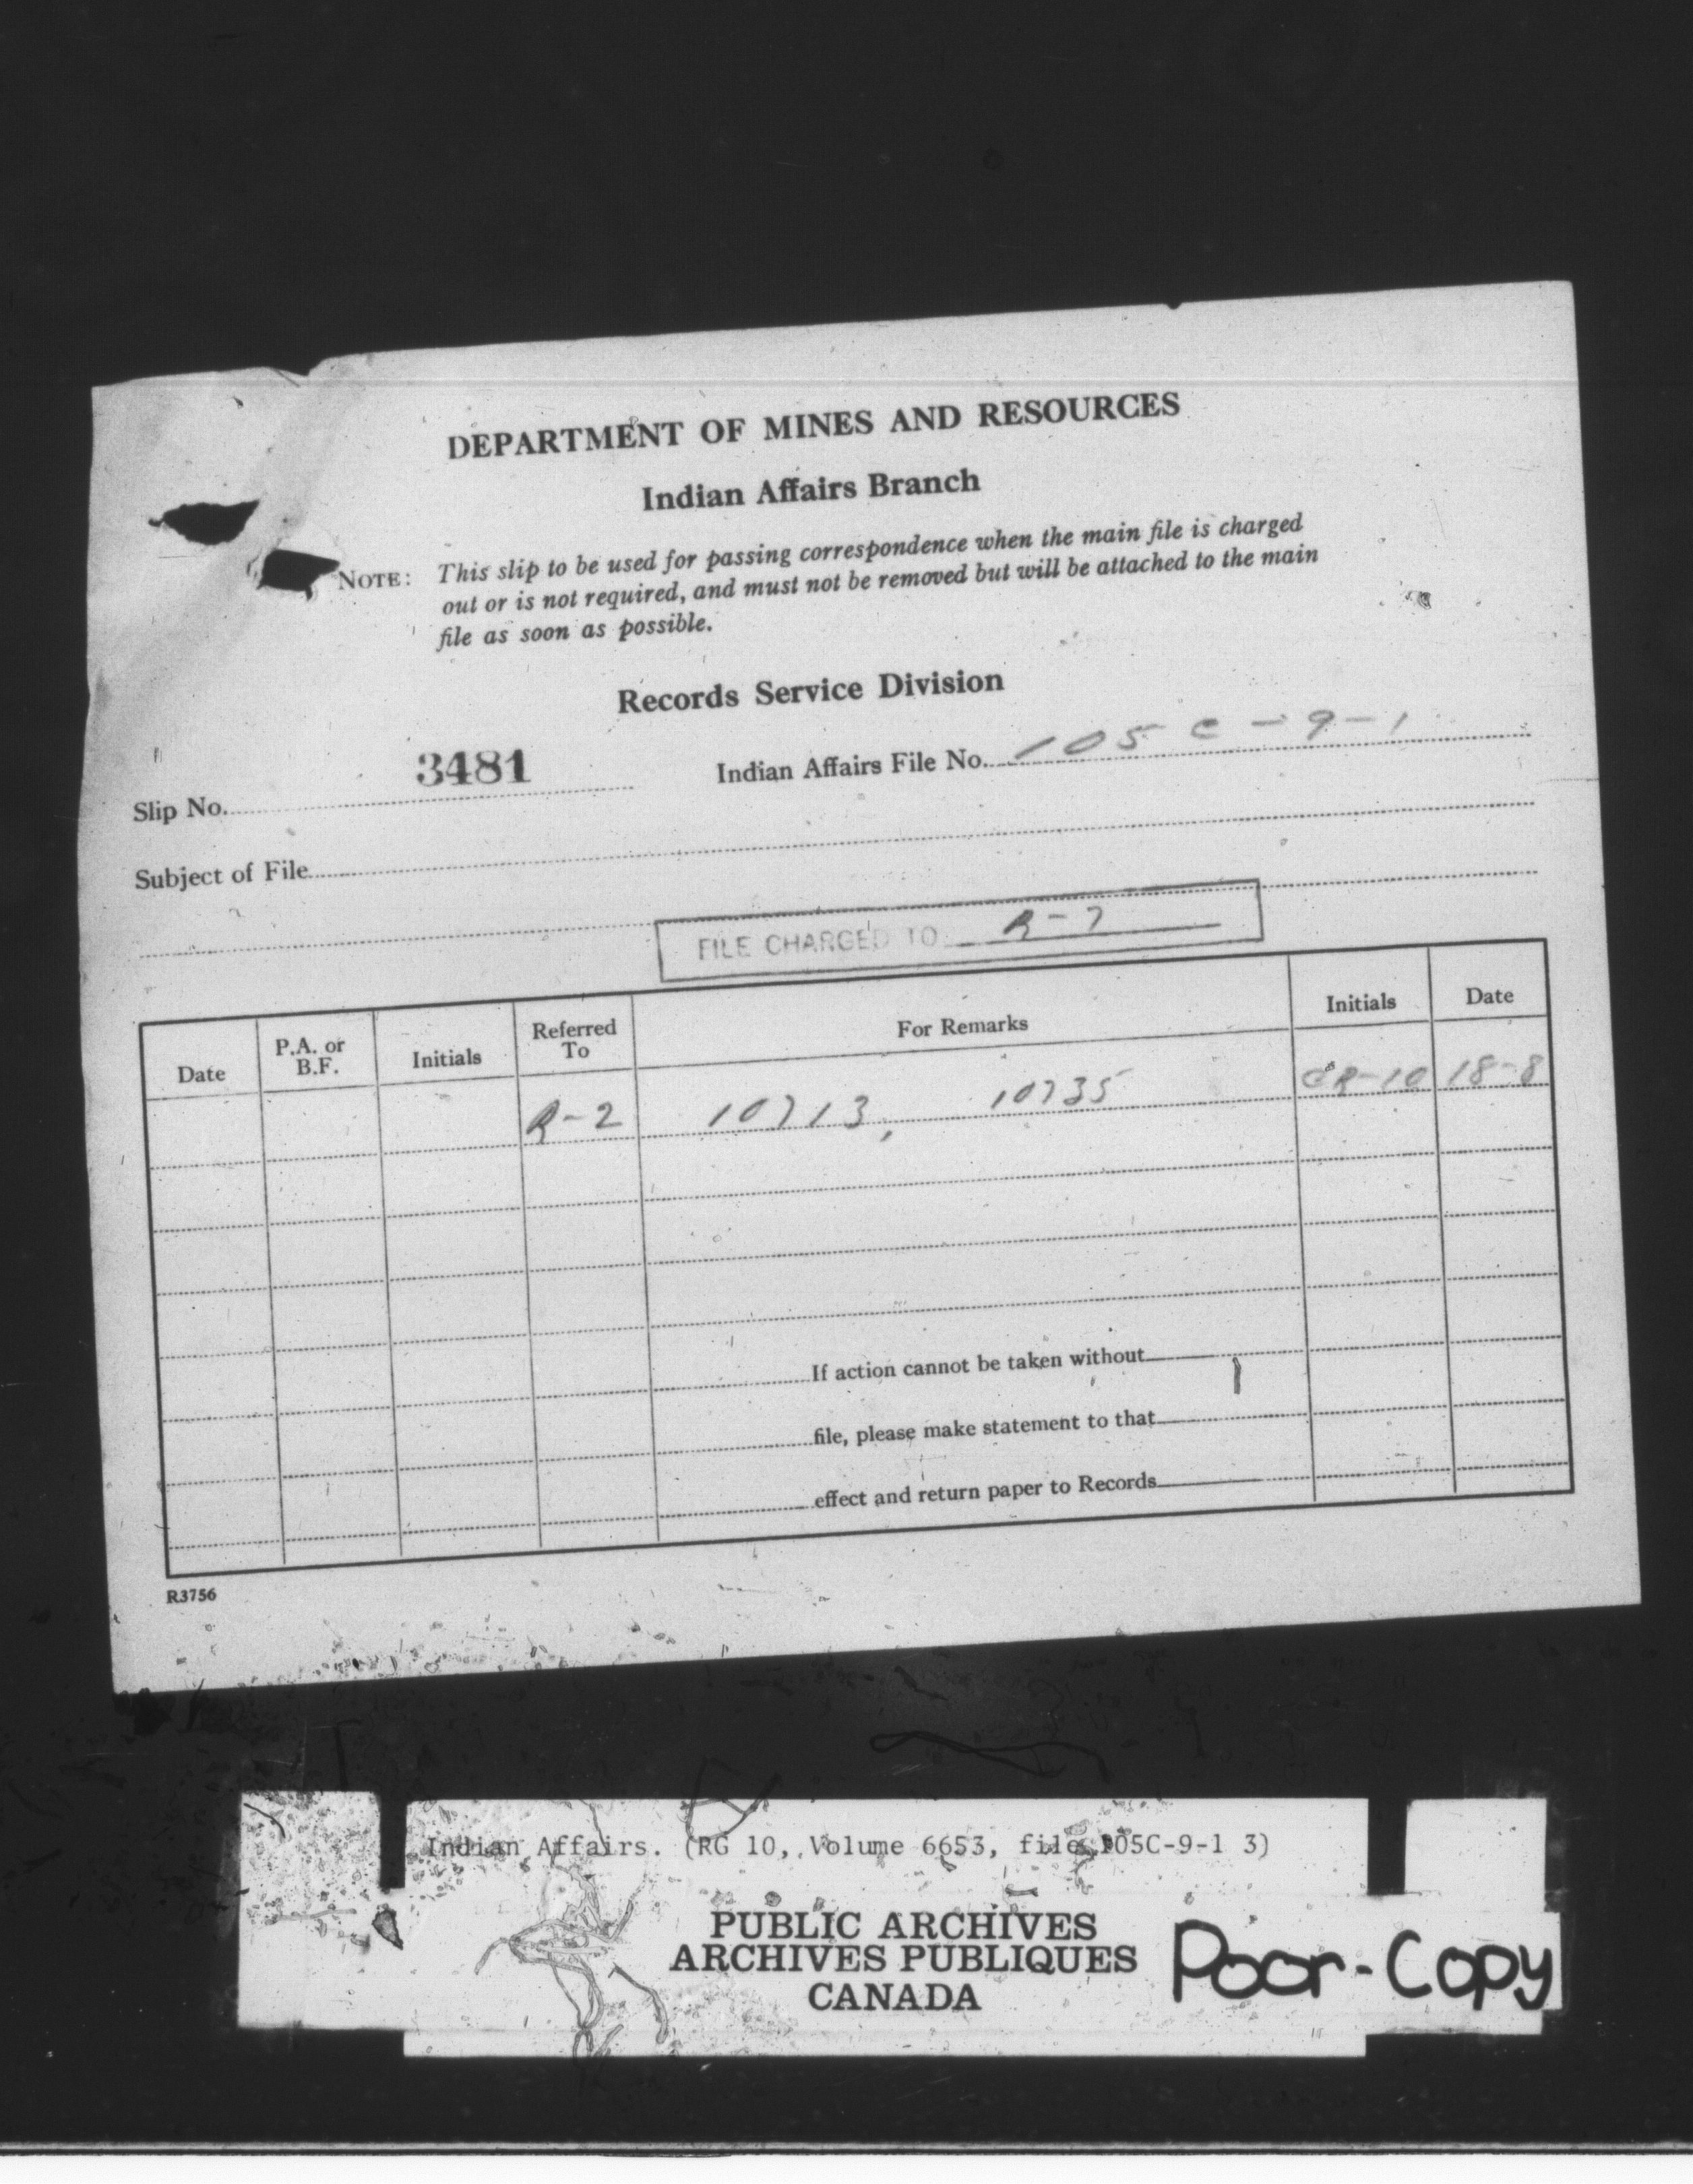 DEPARTMENT OF MINES AND RESOURCES
Indian Affairs Branch
NOTE: This slip to be used for passing correspondence when the main file is charged
out or is not required, and must not be removed but will be attached to the main
file as soon as possible.
Records Service Division
Slip No. 3481 Indian Affairs File No. 105 C-9-1
Subject of File
FILE CHARGED TO R-7
Date P.A. or B.F. Initials Referred To For Remarks Initials Date
R-2 10713, 10735 CR-10 18-8
If action cannot be taken without
file, please make statement to that
effect and return paper to Records
R3756
Indian Affairs. (RG 10, Volume 6653, file 105C-9-1 3)
PUBLIC ARCHIVES
ARCHIVES PUBLIQUES
CANADA
Poor-Copy